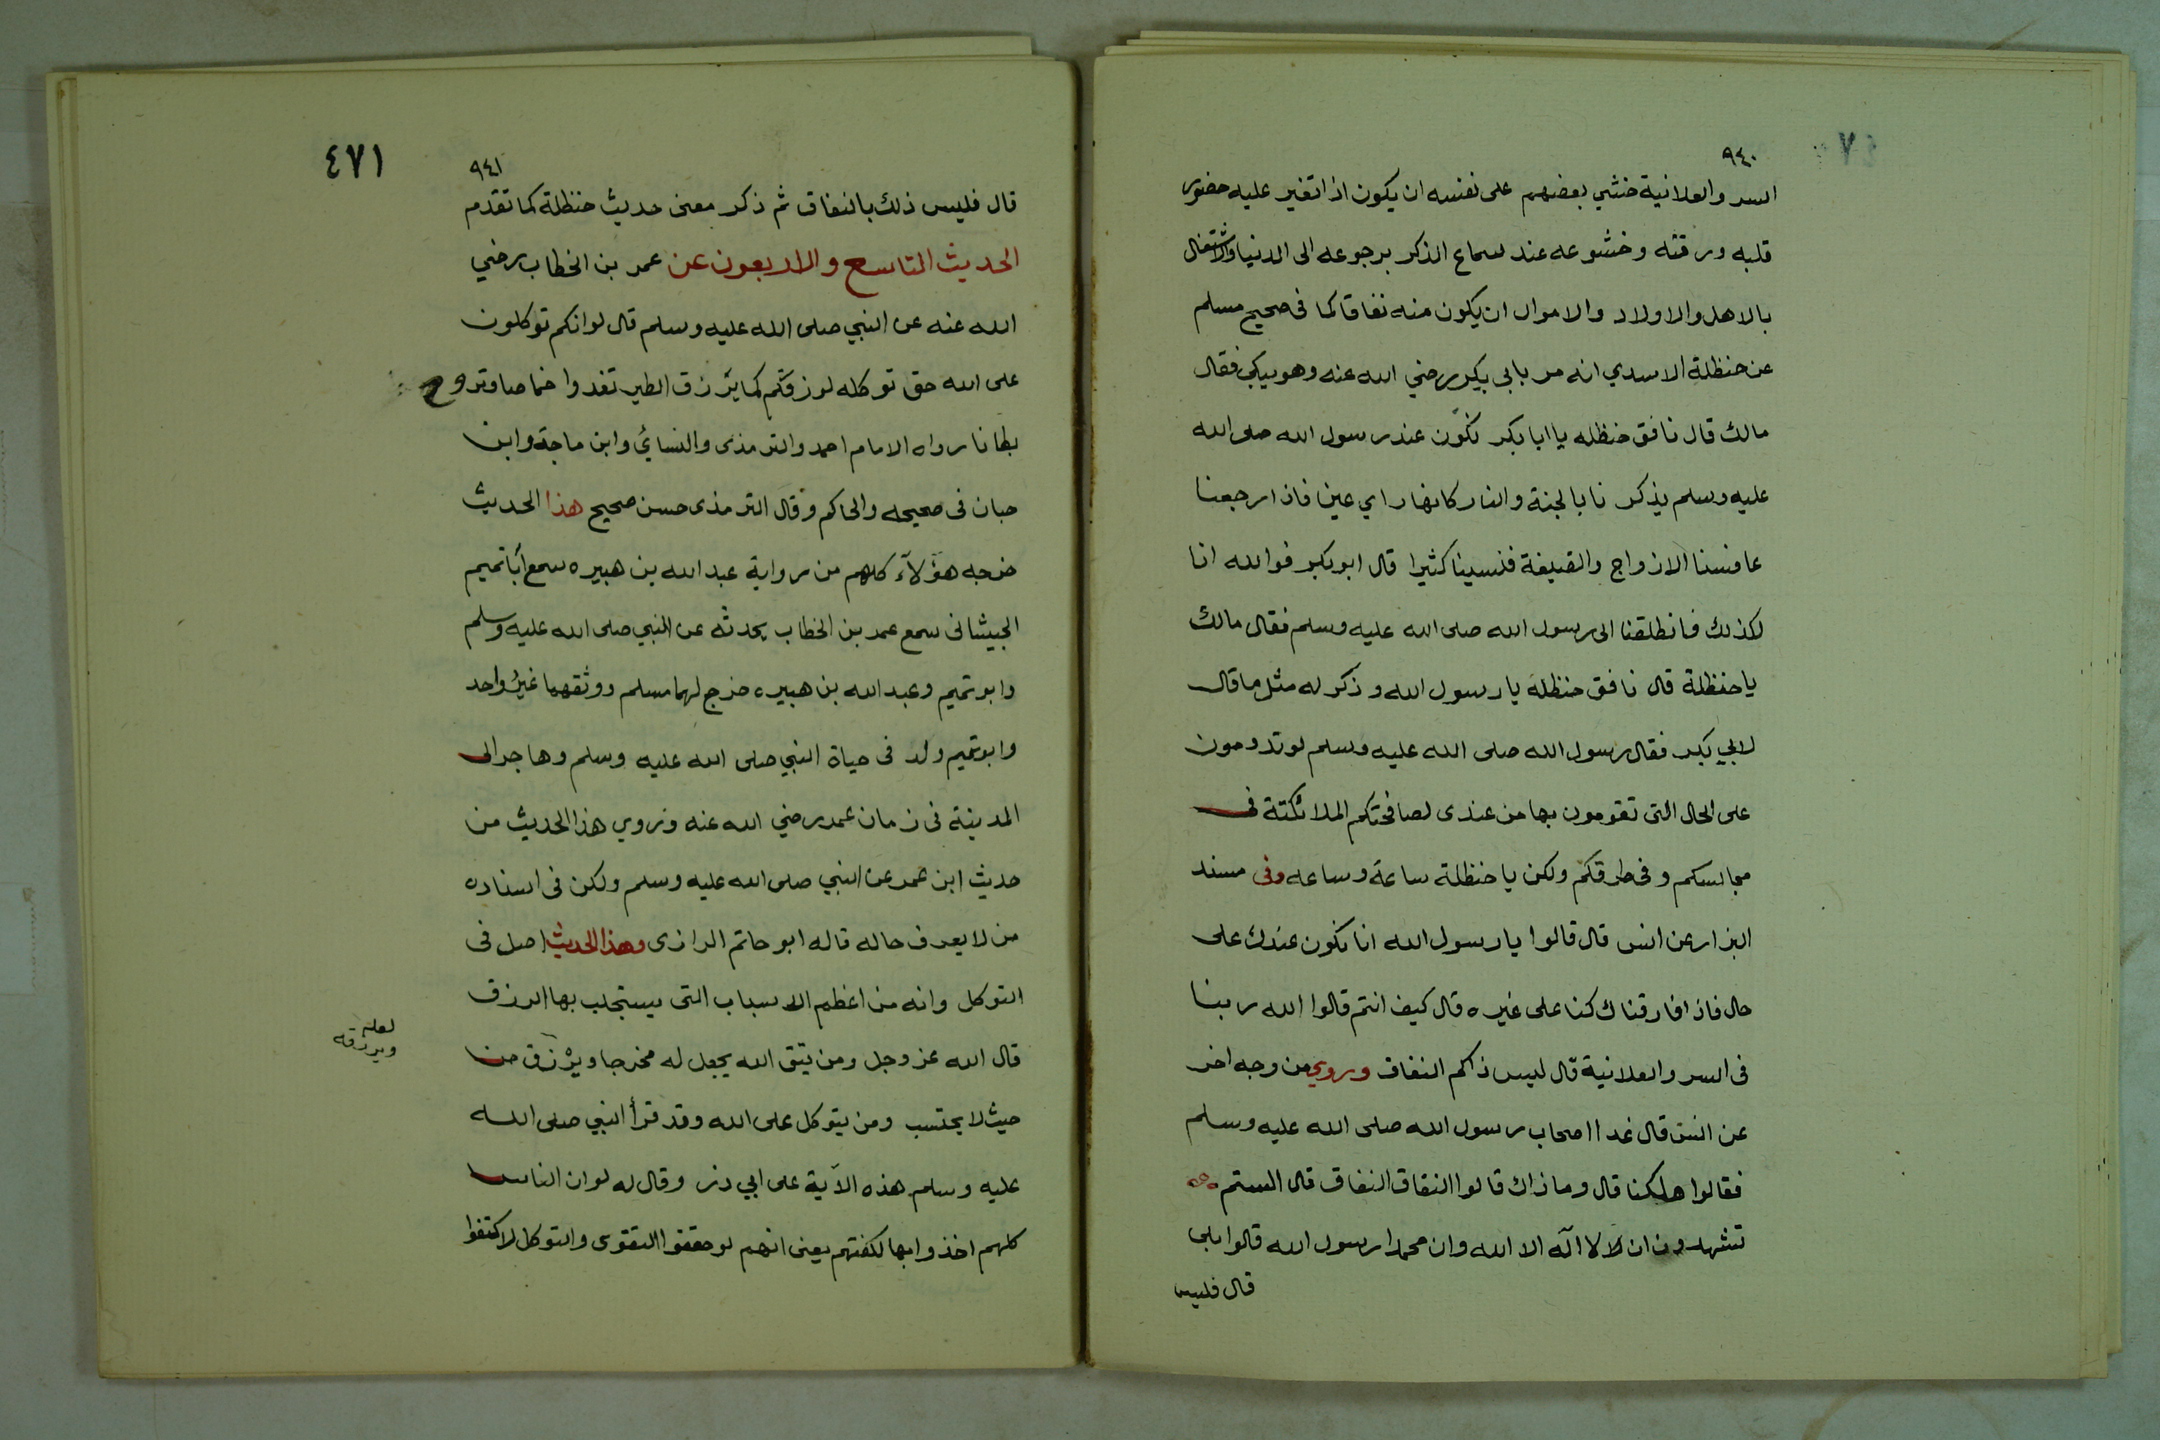 ٩٤٠
السر والعلانية خشي بعضهم على نفسه ان يكون اذا تغير عليه حضور
قلبه ورقته وخشوعه عند سماع الذكر برجوعه الى الدنيا والاشتغال
بالاهل والاولاد والاموال ان يكون منه نفاقا كما فى صحيح مسلم
عن حنظلة الاسدي انه مر بابى بكر رضي الله عنه وهو يبكي فقال
مالك قال نافق حنظله يا ابا بكر نكون عند رسول الله صلى الله
عليه وسلم يذكر نا بالجنة والنار كانها راي عين فاذا رجعنا
عافسنا الازواج والضيعة فنسينا كثيرا قال ابو بكر فوالله انا
لكذلك فانطلقنا الى رسول الله صلى الله عليه وسلم فقال مالك
يا حنظلة قال نافق حنظلة يا رسول الله وذكر له مثل ما قال
لابي بكر فقال رسول الله صلى الله عليه وسلم لو تدومون
على الحال التى تقومون بها من عندى لصافحتكم الملائكتة فى
مجالسكم وفى طرقكم ولكن يا حنظلة ساعة وساعه وفى مسند
البزار عن انس قال قالوا يا رسول الله انا نكون عندك على
حال فاذا فارقناك كنا على غيره قال كيف انتم قالوا الله ربنا
فى السر والعلانية قال ليس ذاكم النفاق وروي من وجه اخر
عن انس قال غدا اصحاب رسول الله صلى الله عليه وسلم
فقالوا هلكنا قال وما ذاك قالوا النقاق النفاق قال الستم
تشهدون ان لا لا اله الا الله وان محمدا رسول الله قالوا بلى
قال فليس
٤٧١
٩٤١
قال فليس ذلك بالنفاق ثم ذكر معنى حديث حنظلة كما تقدم
الحديث التاسع والاربعون عن عمر بن الخطاب رضي
الله عنه عن النبي صلى الله عليه وسلم قال لوانكم توكلون
على الله حق توكله لرزقكم كما يرزق الطير تغدوا خماصا وتروح
بطانا رواه الامام احمد والترمذى والنسائي وابن ماجة وابن
حبان فى صحيحه والحاكم وقال الترمذى حسن صحيح هذا الحديث
خرجه هؤلاء كلهم من رواية عبد الله بن هبيره سمع أبا تميم
الجيشانى سمع عمر بن الخطاب يحدثه عن النبي صلى الله عليه وسلم
وابو تميم وعبد الله بن هبيره خرج لهما مسلم ووثقهما غير واحد
وابو تميم ولد فى حياة النبي صلى الله عليه وسلم وهاجر الى
المدينة فى زمان عمر رضي الله عنه وروي هذا الحديث من
حديث ابن عمر عن النبي صلى الله عليه وسلم ولكن فى اسناده
من لا يعرف حاله قاله ابو حاتم الرازى وهذا الحديث اصل فى
التوكل وانه من اعظم الاسباب التى يستجلب بها الرزق
قال الله عز وجل ومن يتق الله يجعل له مخرجا ويرزق من
لعله ويرزقه
حيث لا يحتسب ومن يتوكل على الله وقد قرأ النبي صلى الله
عليه وسلم هذه الآية على ابي ذر وقال له لو ان الناس
كلهم اخذوا بها لكفتهم يعنى انهم لو حققوا التقوى والتوكل لاكتفوا